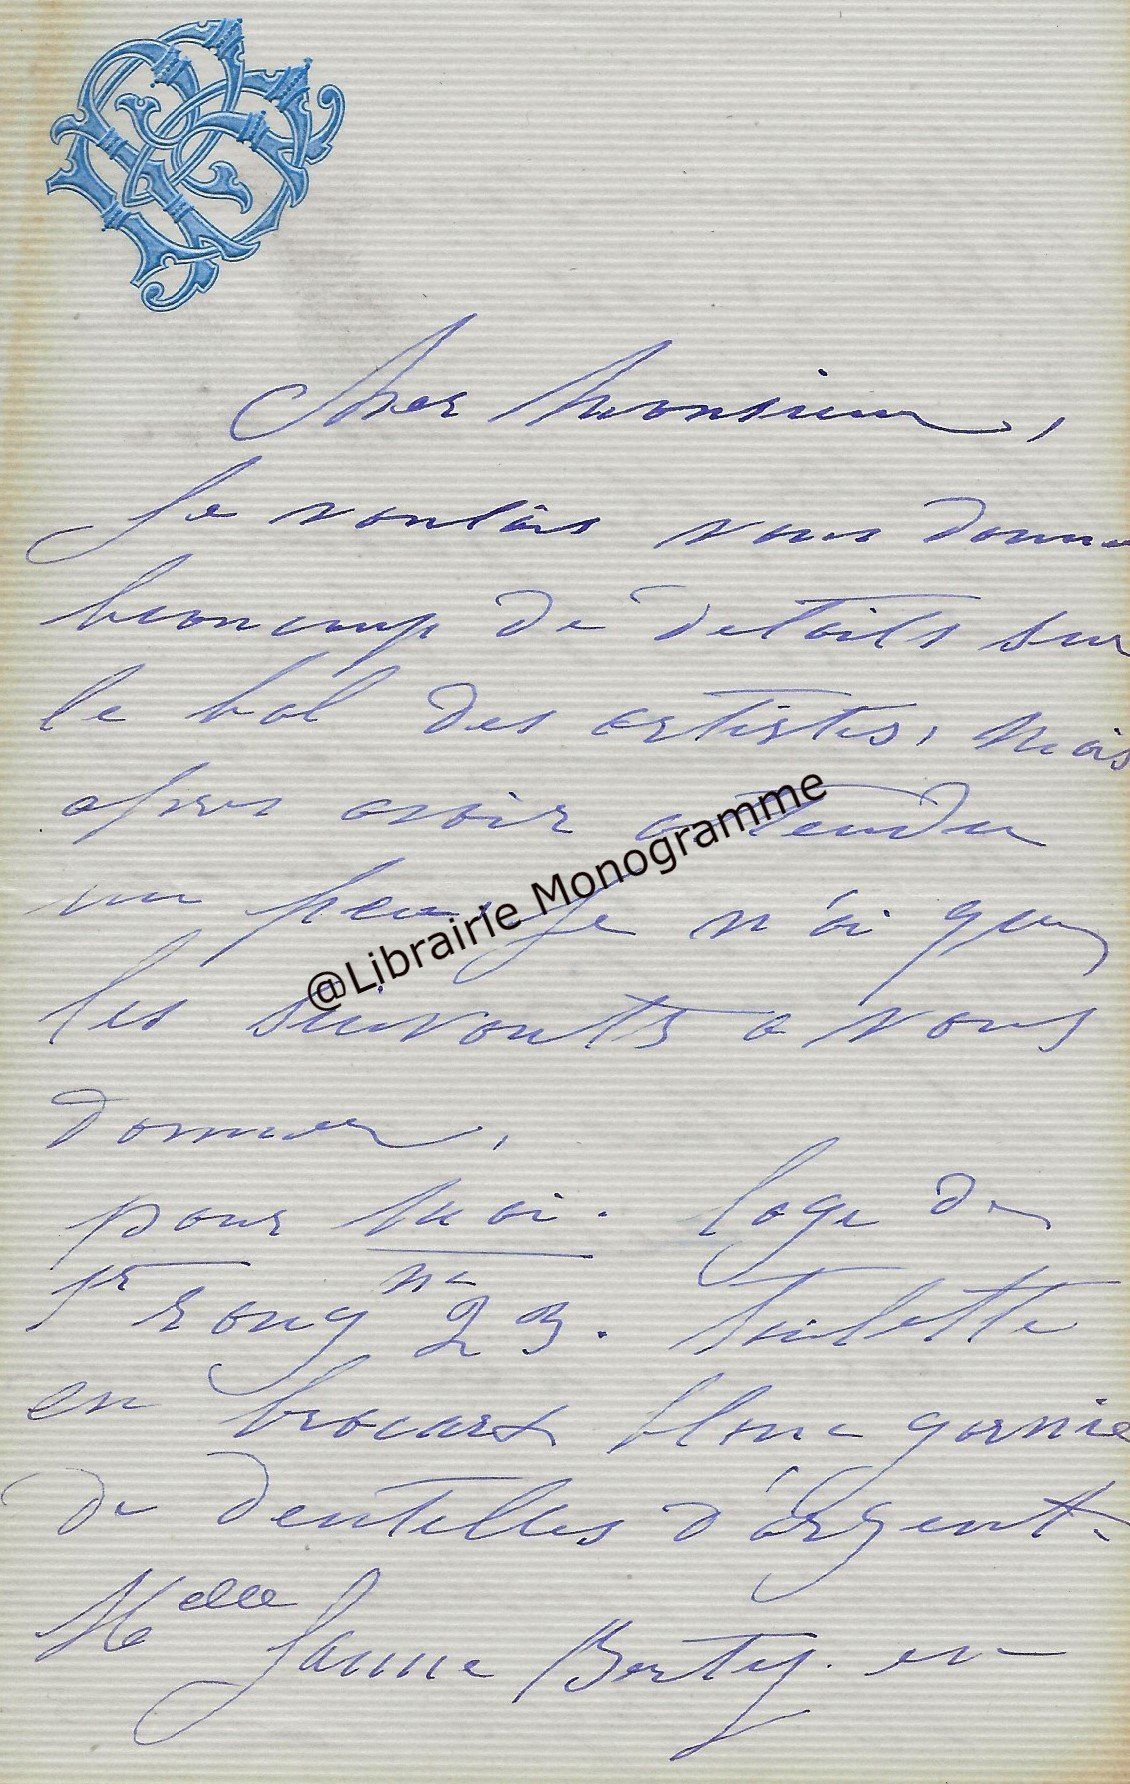 Cher Monsieur,
Je voulais vous donner
beaucoup de details sur
le bal des artistes, mais
apres avoir attendu
un peu, je n'ai que
les suivants a vous
donner.
pour moi. loge de
1r rang no 23. toilette
en brocart blanc garnie
de dentelles d'argent.
Melle Janne Berty. en
@Librairie Monogramme